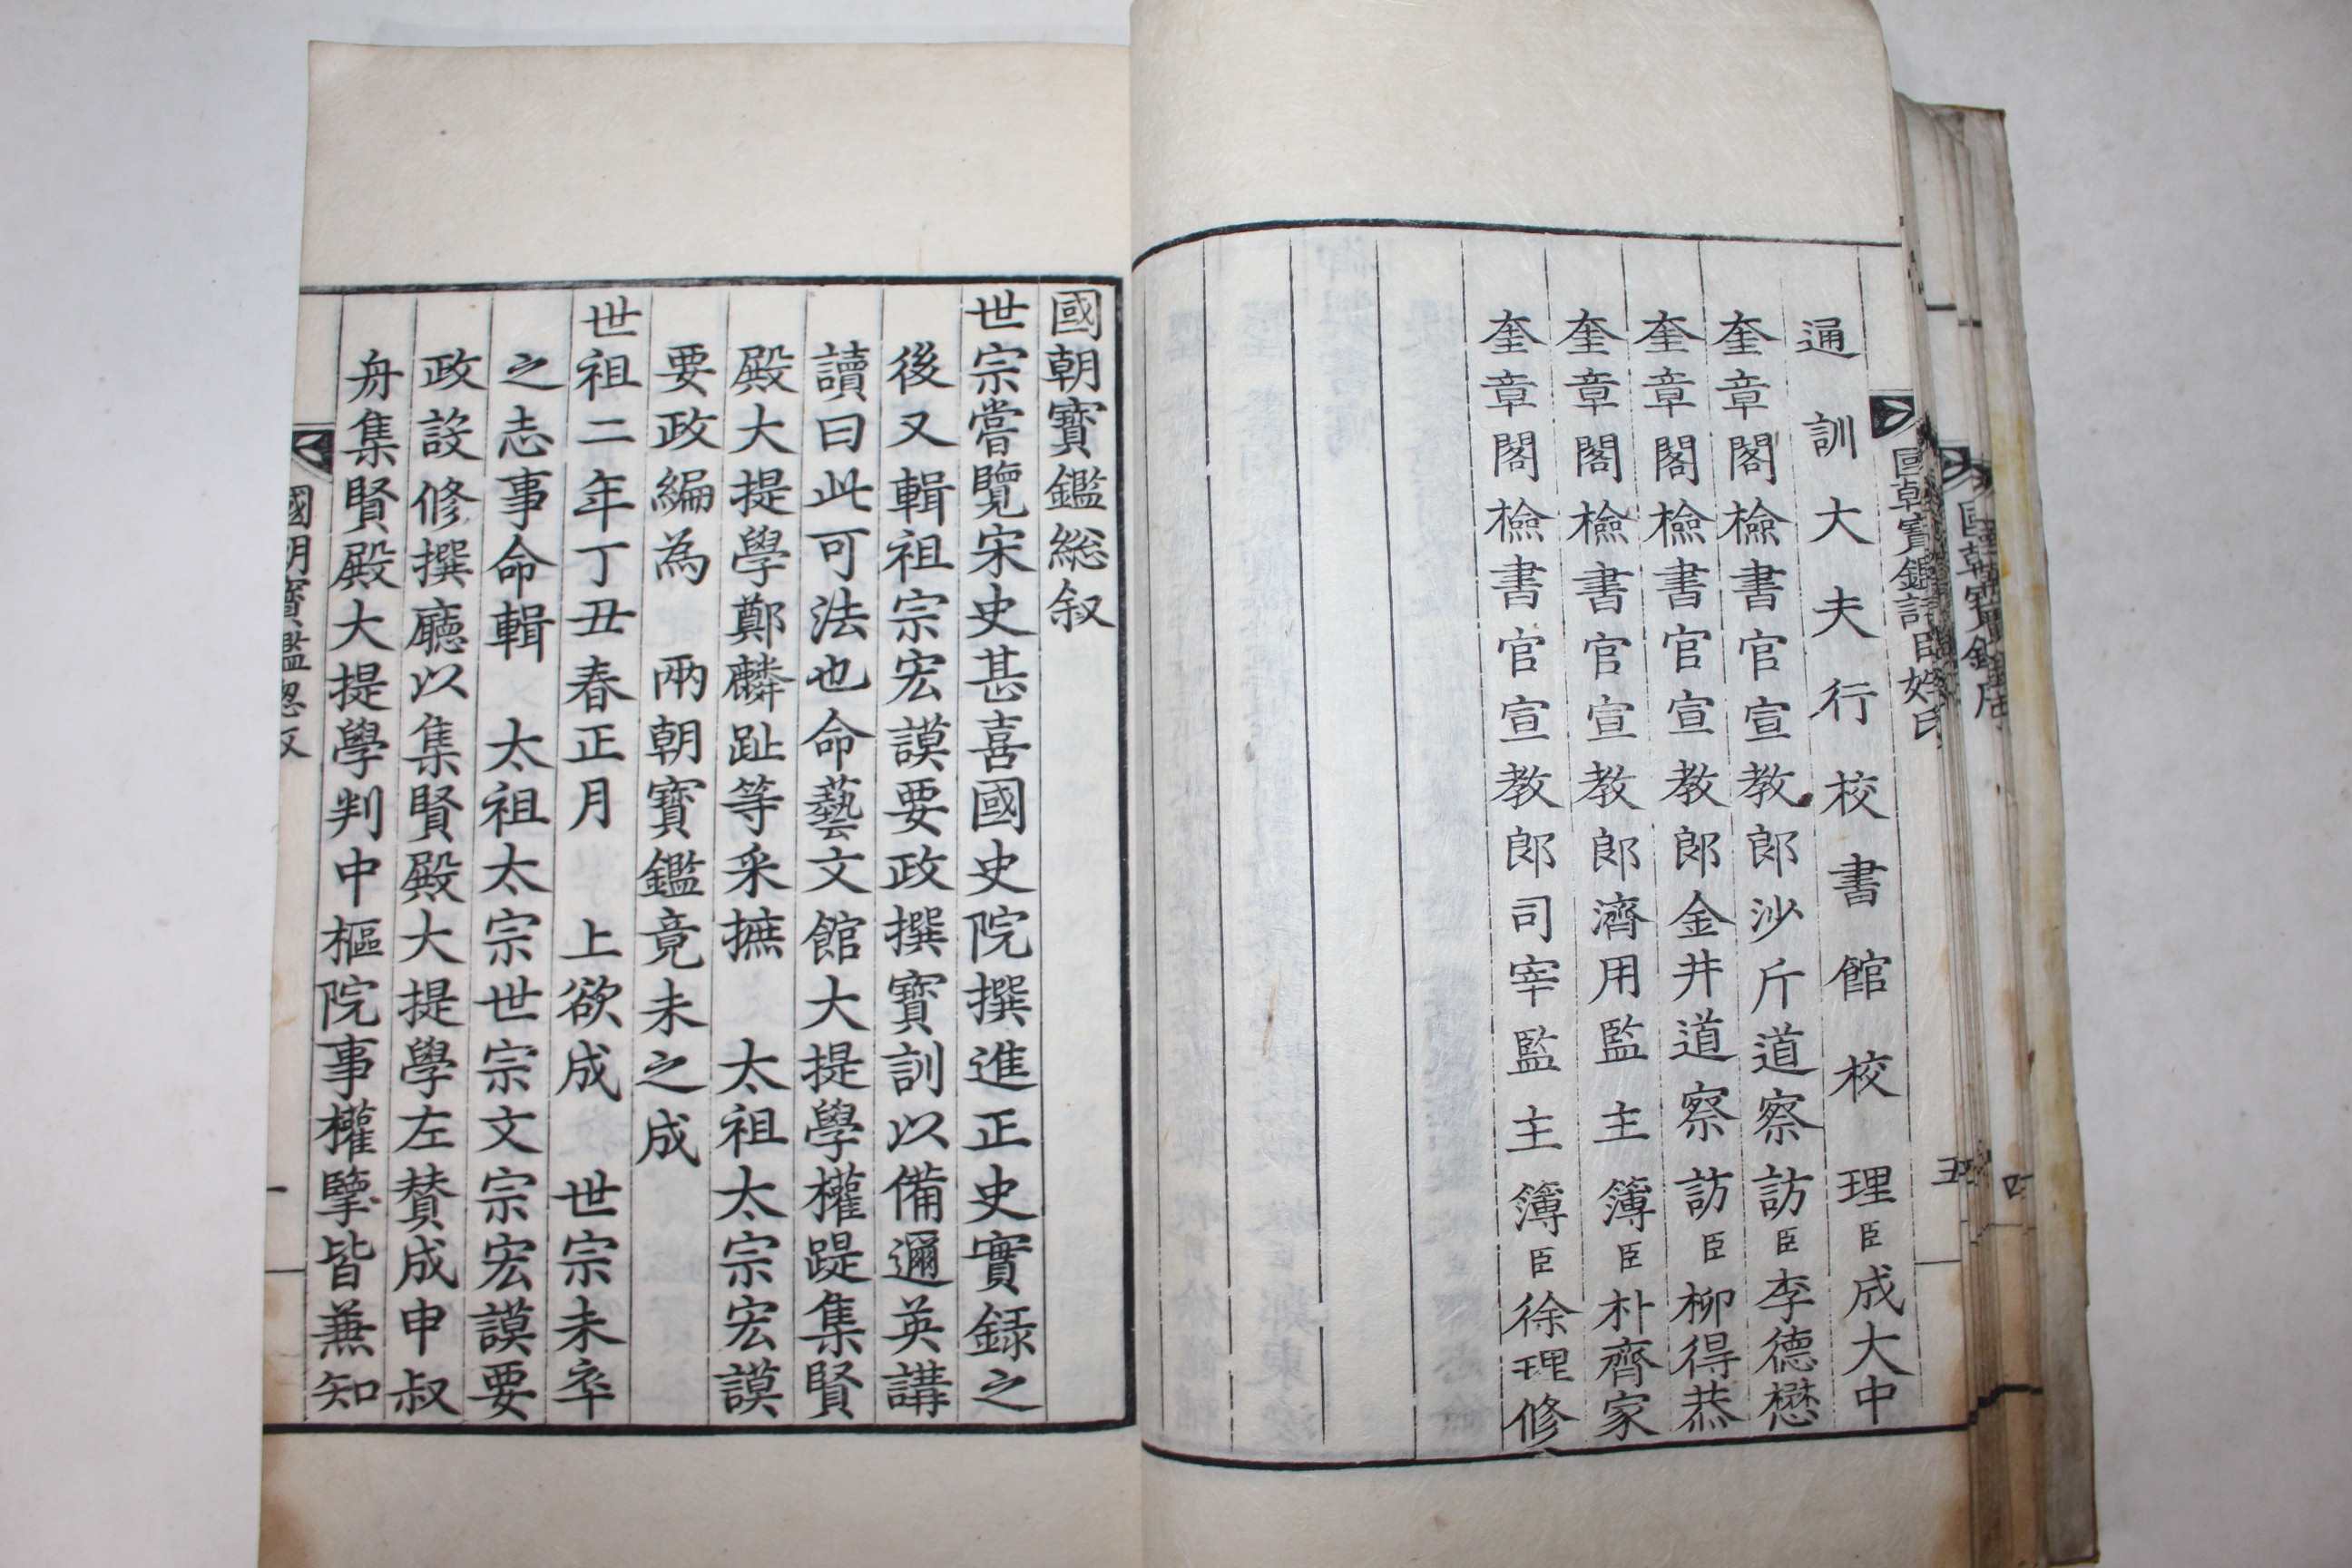 通訓大夫行校書館校理臣成大中
奎章閣檢書官宣教郎沙斤道察訪臣李德懋
奎章閣檢書官宣教郎金井道察訪臣柳得恭
奎章閣檢書官宣教郎濟用監主簿臣朴齊家
奎章閣檢書官宣教郎司宰監主簿臣徐理修
國朝寶鑑総叙
世宗嘗覽宋史甚喜國史院撰進正史實録之
後又輯祖宗宏謨要政撰寶訓以備邇英講
讀曰此可法也命藝文館大提學權踶集賢
殿大提學鄭麟趾等采摭 太祖太宗宏謨
要政編為 兩朝寶鑑竟未之成
世祖二年丁丑春正月 上欲成 世宗未卒
之志事命輯 太祖太宗世宗文宗宏謨要
政設修撰廳以集賢殿大提學左賛成申叔
舟集賢殿大提學判中樞院事權擥皆兼知
國朝寶鑑総叙
一